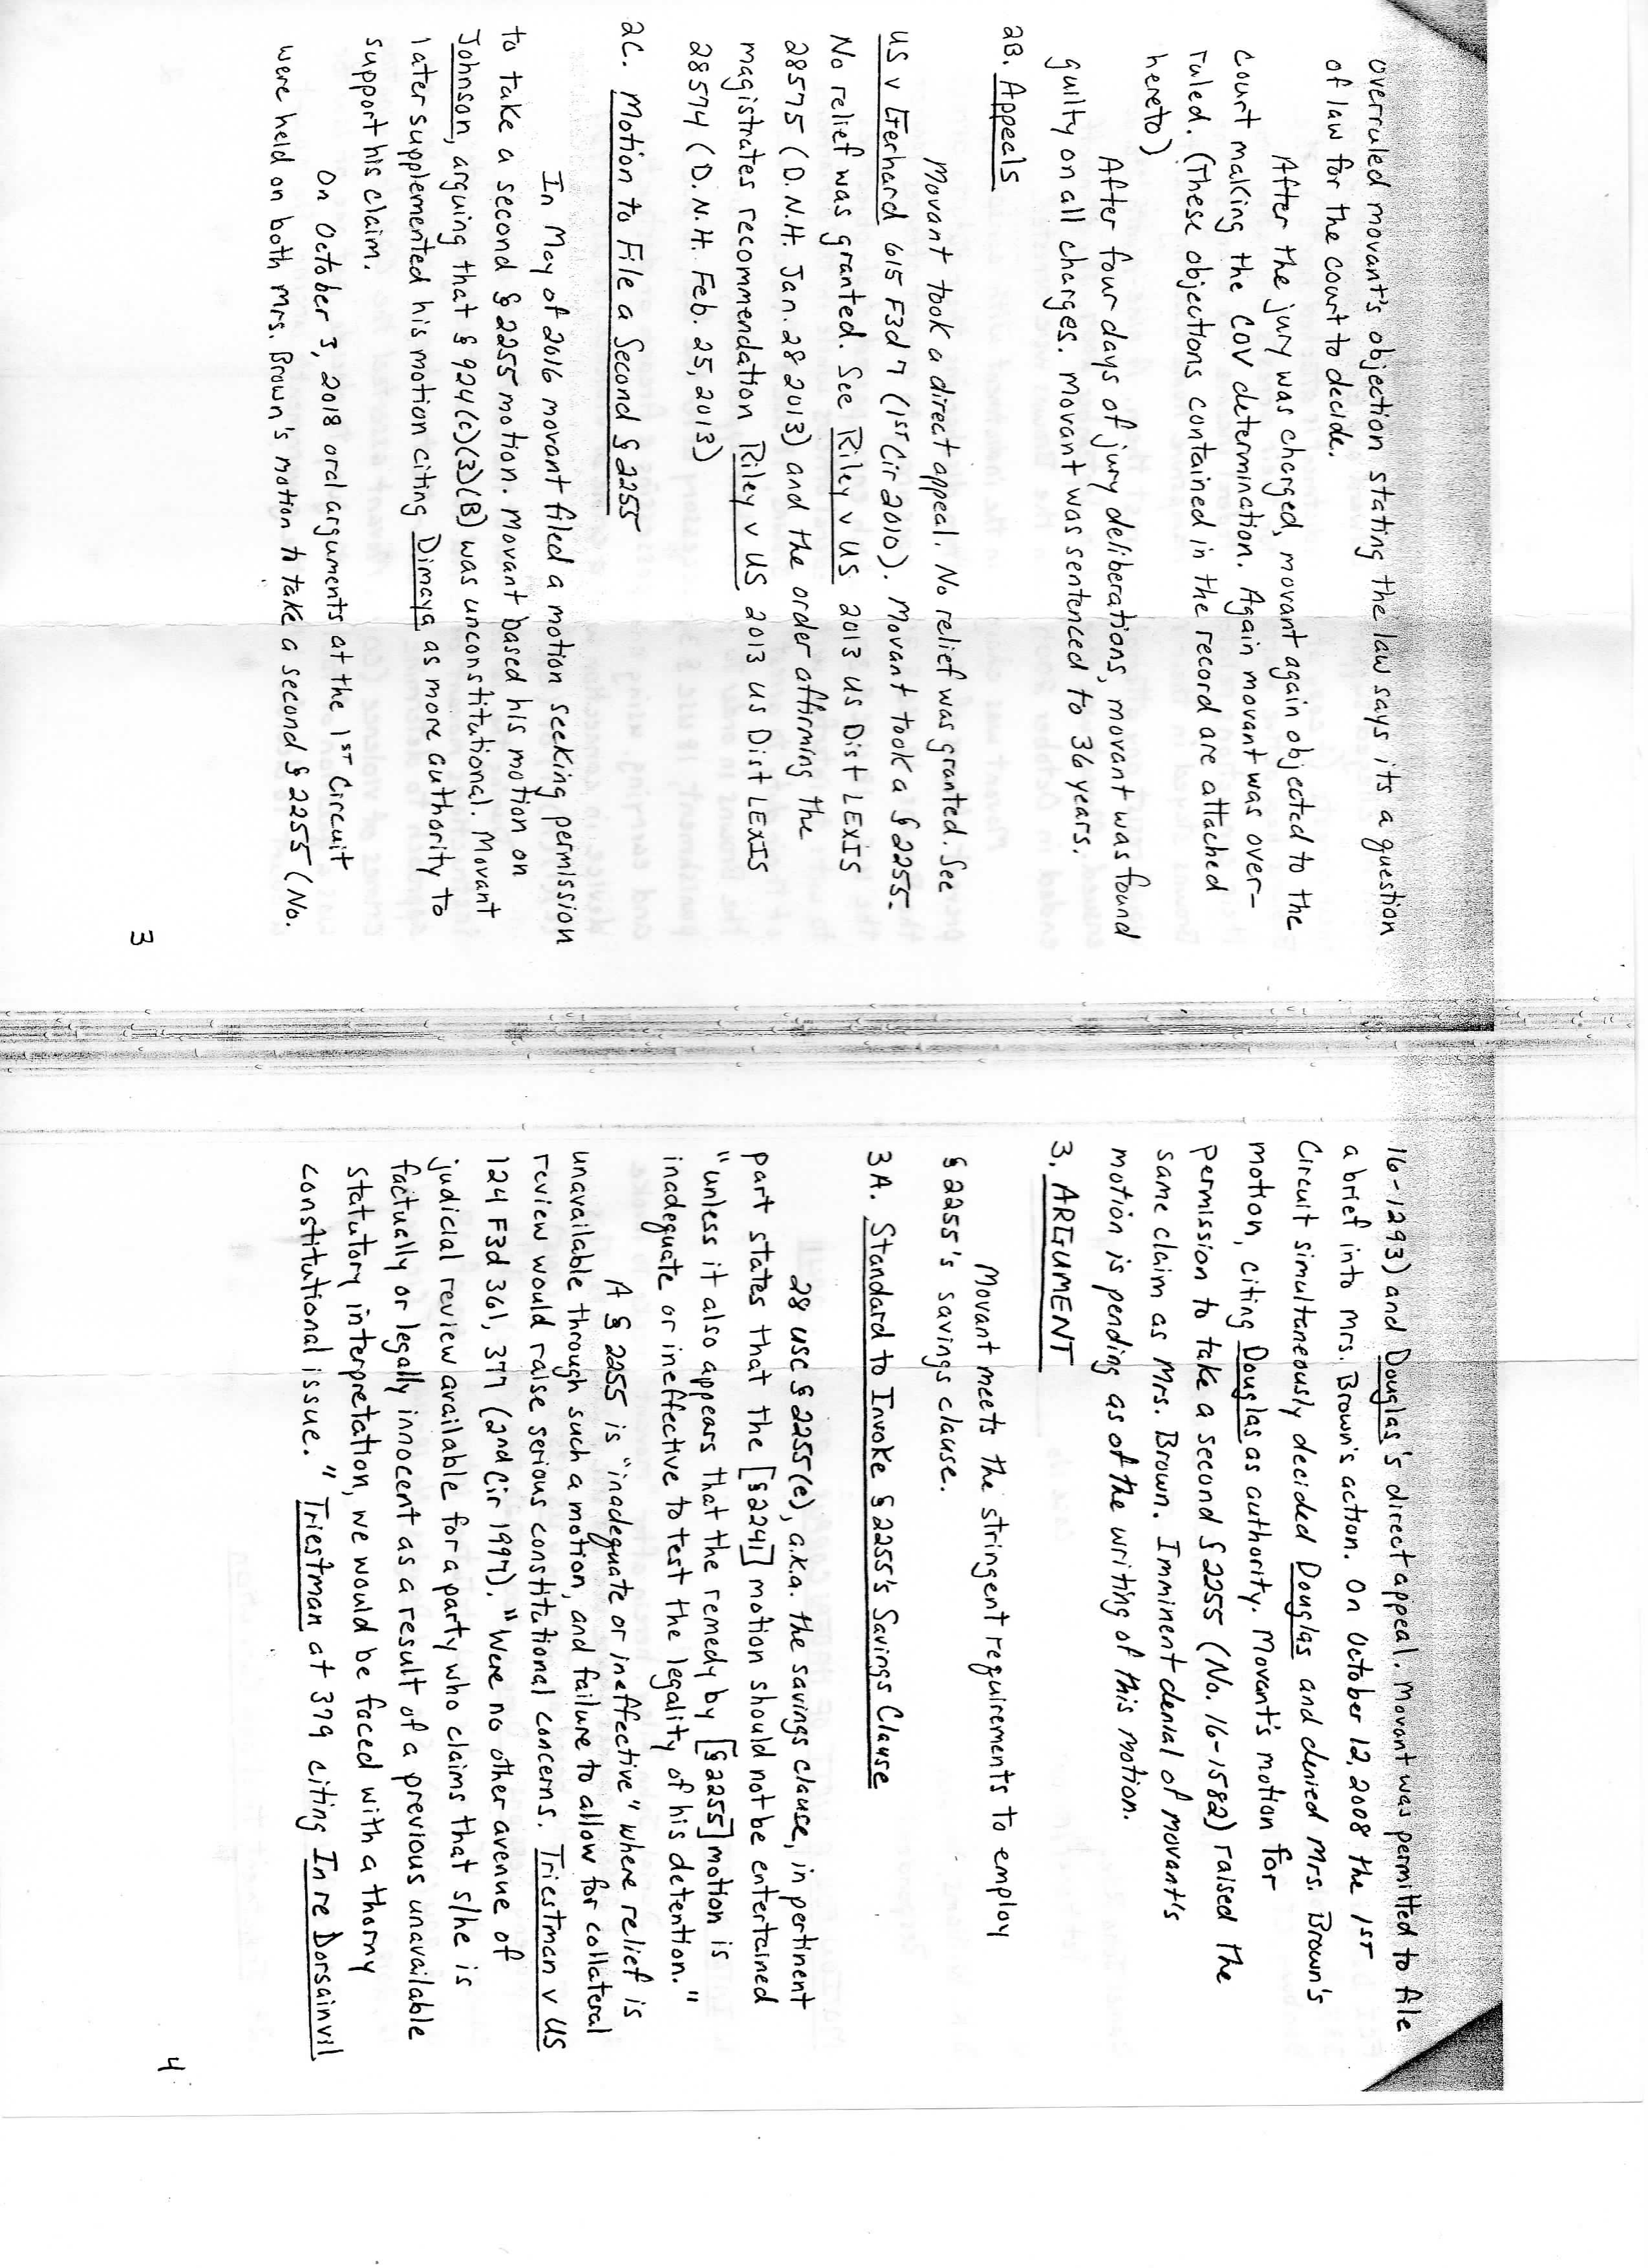 overruled movant's objection stating the law says its a question
of law for the court to decide.
After the jury was charged, movant again objected to the
court making the COV determination. Again movant was over-
ruled. (These objections contained in the record are attached
hereto)
After four days of jury deliberations, movant was found
guilty on all charges. Movant was sentenced to 36 years.
2B. Appeals
Movant took a direct appeal. No relief was granted. See
US v Gerhard 615 F3d 7 (1st Cir 2010). Movant took a § 2255.
No relief was granted. See Riley v US 2013 US Dist LEXIS
28575 (D.N.H. Jan. 28 2013) and the order affirming the
magistrates recommendation Riley v US 2013 US Dist LEXIS
28574 (D.N.H. Feb. 25, 2013)
2C. Motion to File a Second § 2255
In May of 2016 movant filed a motion seeking permission
to take a second § 2255 motion. Movant based his motion on
Johnson, arguing that § 924(c)(3)(B) was unconstitutional. Movant
later supplemented his motion citing Dimaya as more authority to
support his claim.
On October 3, 2018 oral arguments at the 1st Circuit
were held on both Mrs. Brown's motion to take a second § 2255 (No.
3
16-1293) and Douglas's direct appeal. Movant was permitted to file
a brief into Mrs. Brown's action. On October 12, 2008 the 1st
Circuit simultaneously decided Douglas and denied Mrs. Brown's
motion, citing Douglas as authority. Movant's motion for
permission to take a second § 2255 (No. 16-1582) raised the
same claim as Mrs. Brown. Imminent denial of movant's
motion is pending as of the writing of this motion.
3. ARGUMENT
Movant meets the stringent requirements to employ
§ 2255's savings clause.
3A. Standard to Invoke § 2255's Savings Clause
28 USC § 2255(e), a.k.a. the savings clause, in pertinent
part states that the [§ 2241] motion should not be entertained
"unless it also appears that the remedy by [§ 2255] motion is
inadequate or ineffective to test the legality of his detention."
A § 2255 is "inadequate or ineffective" where relief is
unavailable through such a motion, and failure to allow for collateral
review would raise serious constitutional concerns. Triestman v US
124 F3d 361, 377 (2nd Cir 1997). "Were no other avenue of
judicial review available for a party who claims that s/he is
factually or legally innocent as a result of a previous unavailable
statutory interpretation, we would be faced with a thorny
constitutional issue." Triestman at 379 citing In re Dorsainvil
4